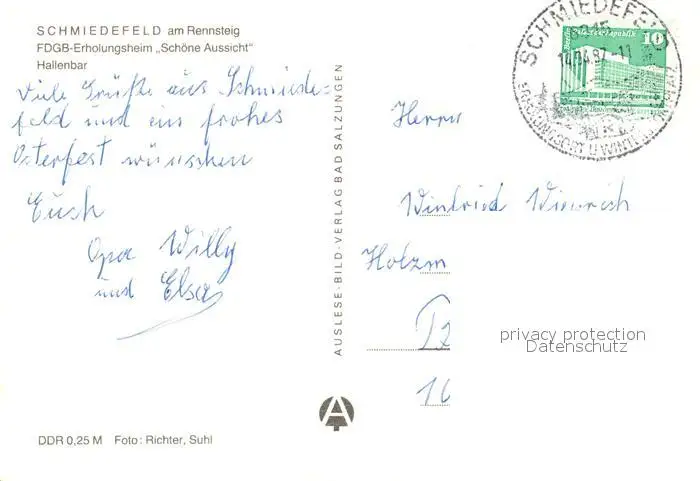 SCHMIEDEFELD am Rennsteig
FDGB-Erholungsheim „Schöne Aussicht“
Hallenbar
Viele Grüße aus Schmiede=
feld und ein frohes
Osterfest wünschen
Euch
Opa Willy
und Elsa
AUSLESE-BILD-VERLAG BAD SALZUNGEN
SCHMIEDEFELD
14.04.87-11
10
Herrn
Winfried
Holzm
16
privacy protection
Datenschutz
DDR 0,25 M Foto: Richter, Suhl